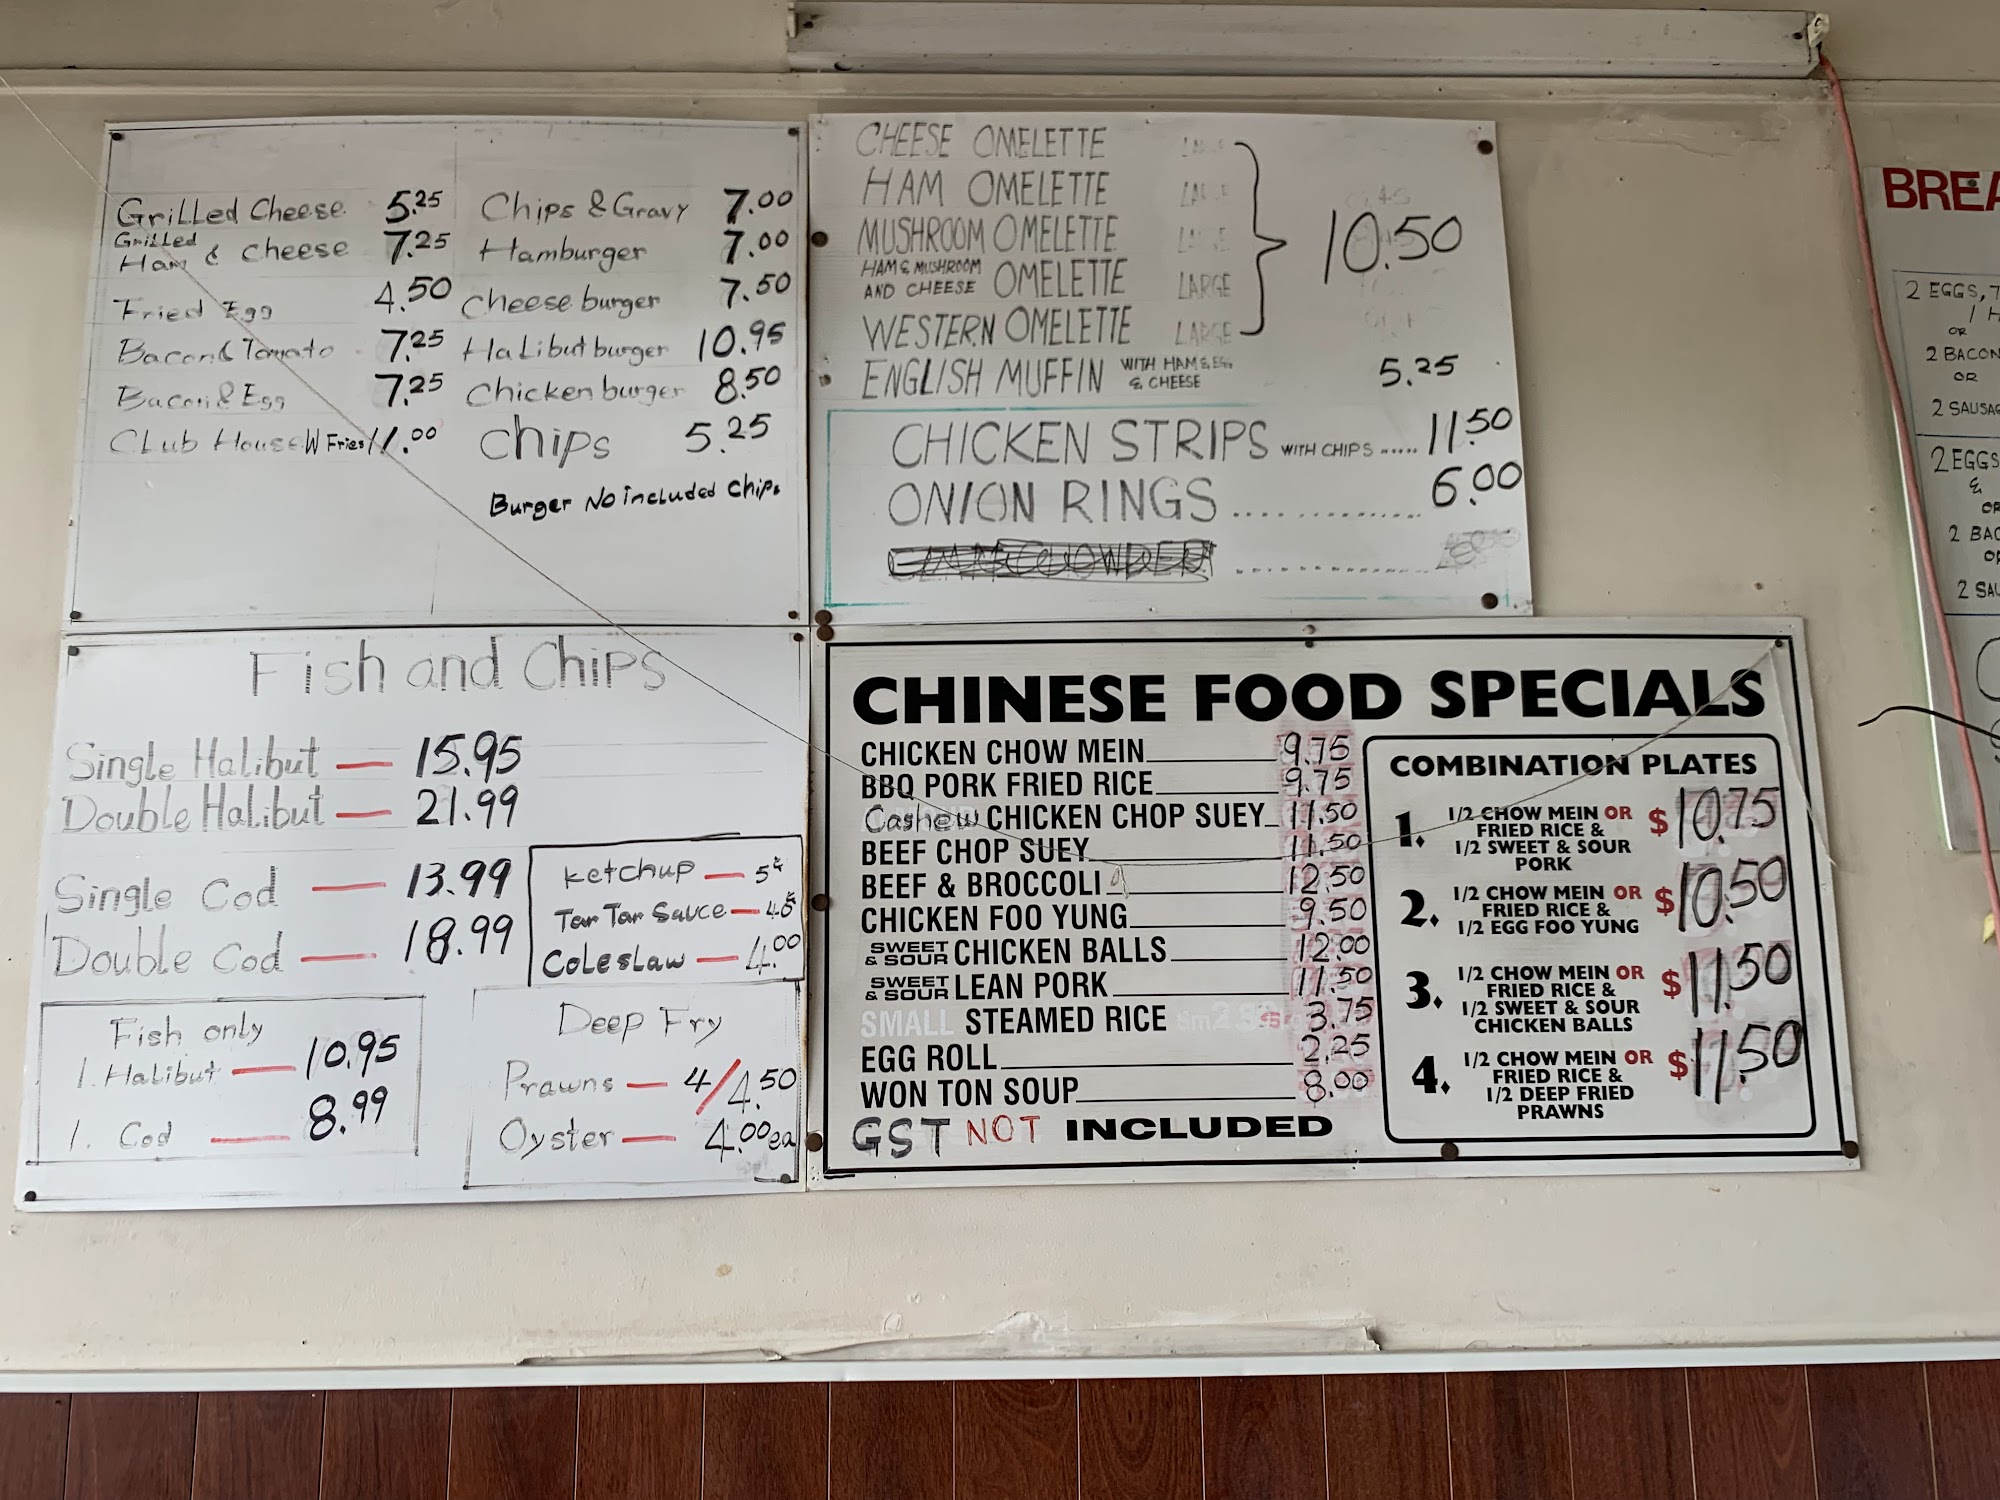 Grilled Cheese 5.25
Grilled
Ham & Cheese 7.25
Fried Egg 4.50
Bacon & Tomato 7.25
Bacon & Egg 7.25
Club House W Fries 11.00
Chips & Gravy 7.00
Hamburger 7.00
Cheese burger 7.50
Halibut burger 10.95
Chicken burger 8.50
Chips 5.25
Burger No included Chips
CHEESE OMELETTE LARGE
HAM OMELETTE LARGE
MUSHROOM OMELETTE LARGE
HAM & MUSHROOM
AND CHEESE OMELETTE LARGE
WESTERN OMELETTE LARGE
10.50
ENGLISH MUFFIN WITH HAM & EGG
& CHEESE 5.25
CHICKEN STRIPS WITH CHIPS ..... 11.50
ONION RINGS .............. 6.00
Fish and Chips
Single Halibut — 15.95
Double Halibut — 21.99
Single Cod — 13.99
Double Cod — 18.99
Ketchup — 5¢
Tar Tar Sauce —
Coleslaw — 4.00
Fish only
1. Halibut — 10.95
1. Cod — 8.99
Deep Fry
Prawns — 4/4.50
Oyster — 4.00 ea
CHINESE FOOD SPECIALS
CHICKEN CHOW MEIN 9.75
BBQ PORK FRIED RICE 9.75
Cashew CHICKEN CHOP SUEY 11.50
BEEF CHOP SUEY 11.50
BEEF & BROCCOLI 12.50
CHICKEN FOO YUNG 9.50
SWEET & SOUR CHICKEN BALLS 12.00
SWEET & SOUR LEAN PORK 11.50
SMALL STEAMED RICE 3.75
EGG ROLL 2.25
WON TON SOUP 8.00
GST NOT INCLUDED
COMBINATION PLATES
1. 1/2 CHOW MEIN OR
FRIED RICE &
1/2 SWEET & SOUR
PORK
$10.75
2. 1/2 CHOW MEIN OR
FRIED RICE &
1/2 EGG FOO YUNG
$10.50
3. 1/2 CHOW MEIN OR
FRIED RICE &
1/2 SWEET & SOUR
CHICKEN BALLS
$11.50
4. 1/2 CHOW MEIN OR
FRIED RICE &
1/2 DEEP FRIED
PRAWNS
$11.50
BREA
2 EGGS,
OR
2 BACON
OR
2 SAUSAG
2 EGGS
&
OR
2 BAC
OR
2 SAU